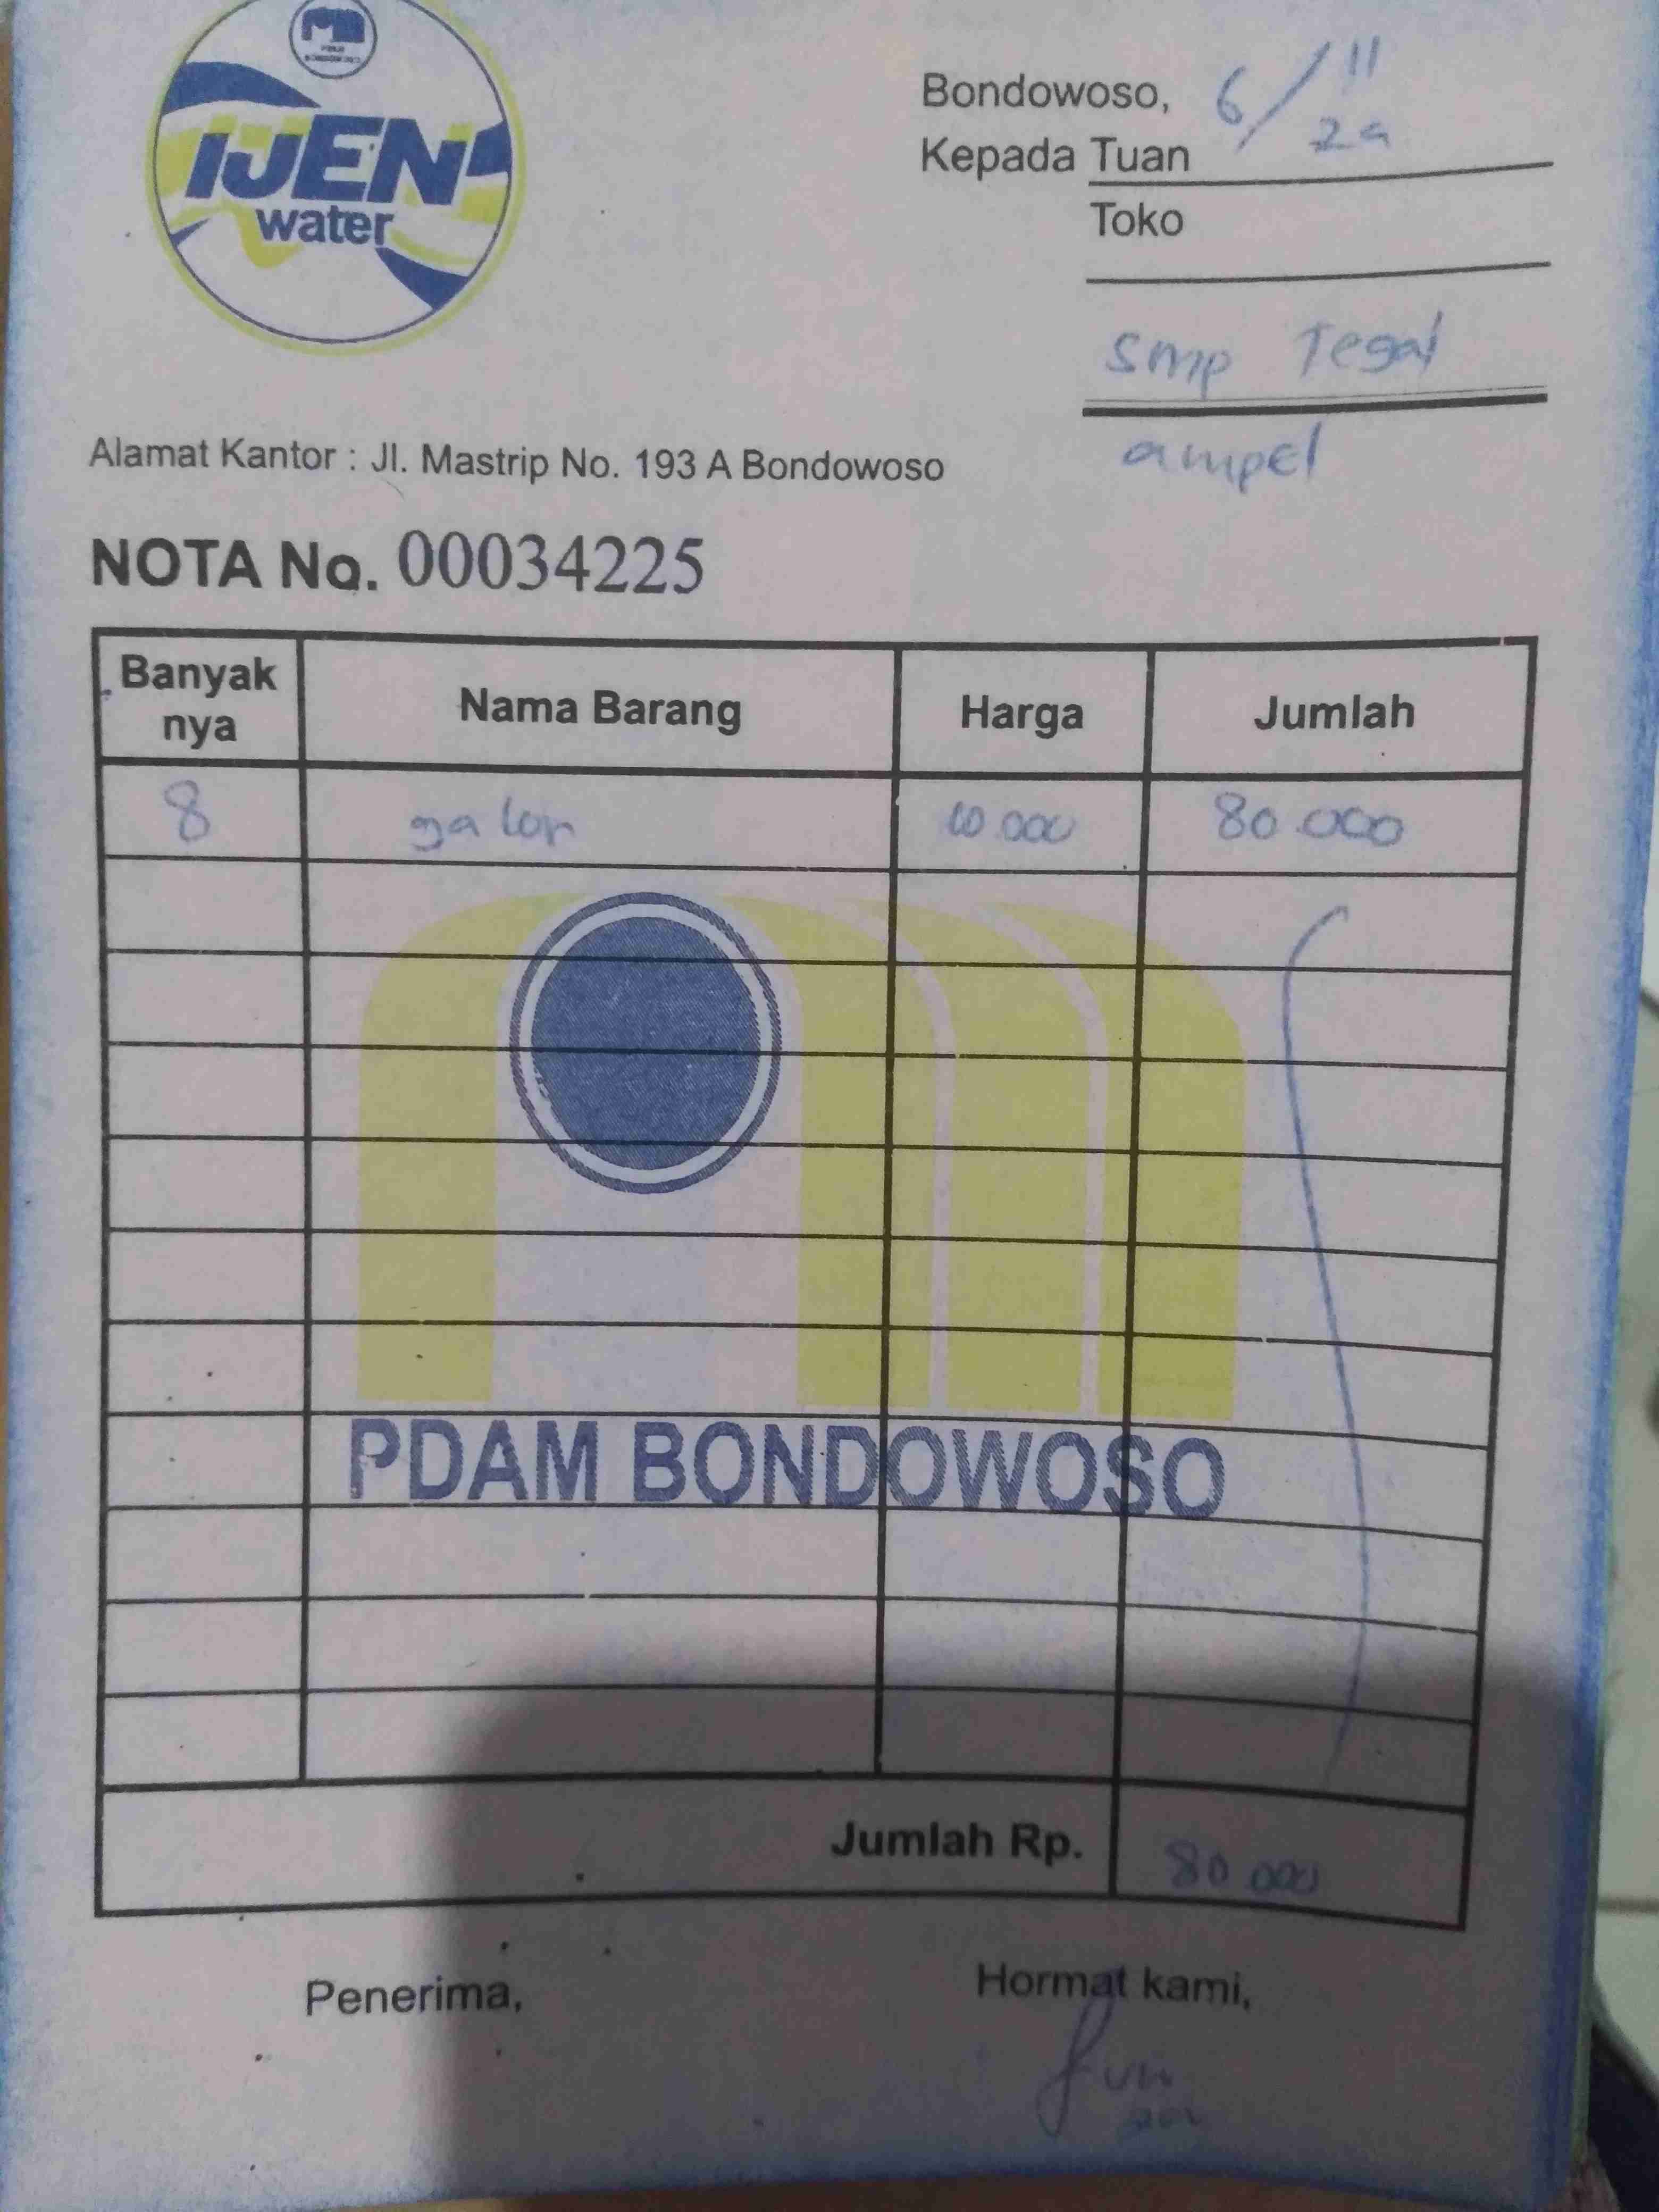 IJEN
water
Bondowoso, 6/11
24
Kepada Tuan
Toko
smp Tegal
ampel
Alamat Kantor : Jl. Mastrip No. 193 A Bondowoso
NOTA No. 00034225
Banyak nya Nama Barang Harga Jumlah
8 galon 10.000 80.000
PDAM BONDOWOSO
Jumlah Rp. 80 000
Penerima, Hormat kami,